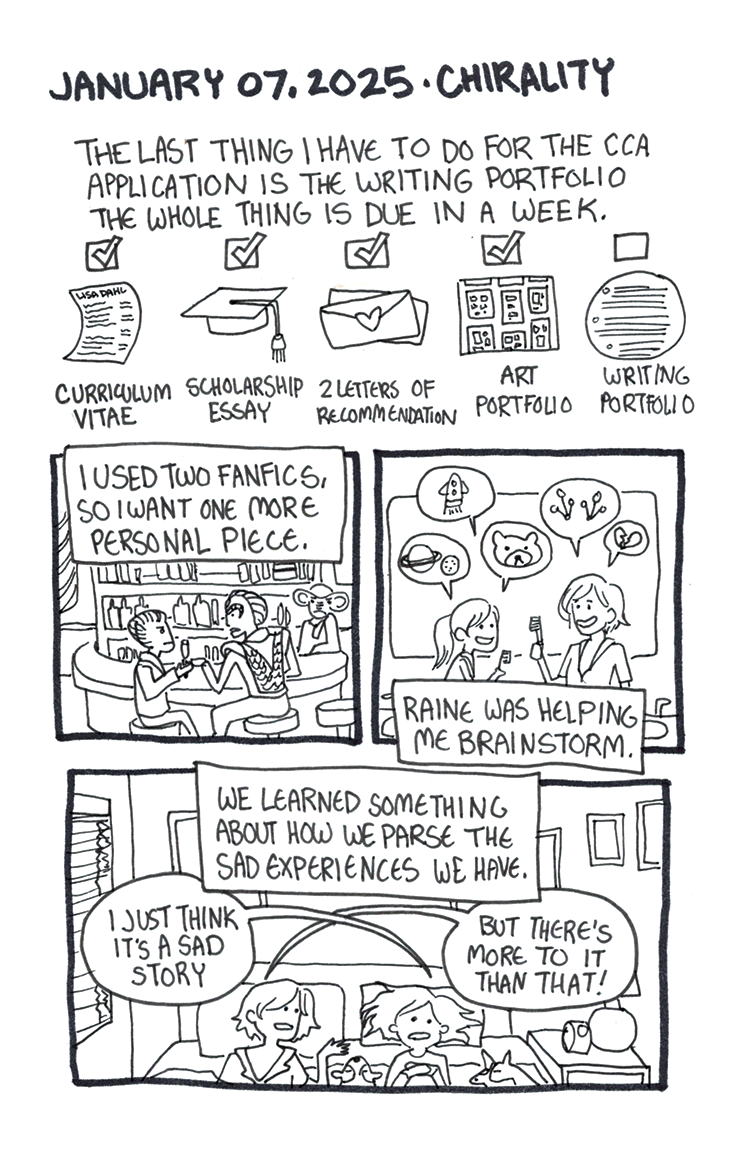 JANUARY 07. 2025 · CHIRALITY
THE LAST THING I HAVE TO DO FOR THE CCA
APPLICATION IS THE WRITING PORTFOLIO
THE WHOLE THING IS DUE IN A WEEK.
LISA DAHL
CURRICULUM
VITAE
SCHOLARSHIP
ESSAY
2 LETTERS OF
RECOMMENDATION
ART
PORTFOLIO
WRITING
PORTFOLIO
I USED TWO FANFICS,
SO I WANT ONE MORE
PERSONAL PIECE.
RAINE WAS HELPING
ME BRAINSTORM.
WE LEARNED SOMETHING
ABOUT HOW WE PARSE THE
SAD EXPERIENCES WE HAVE.
I JUST THINK
IT'S A SAD
STORY
BUT THERE'S
MORE TO IT
THAN THAT!